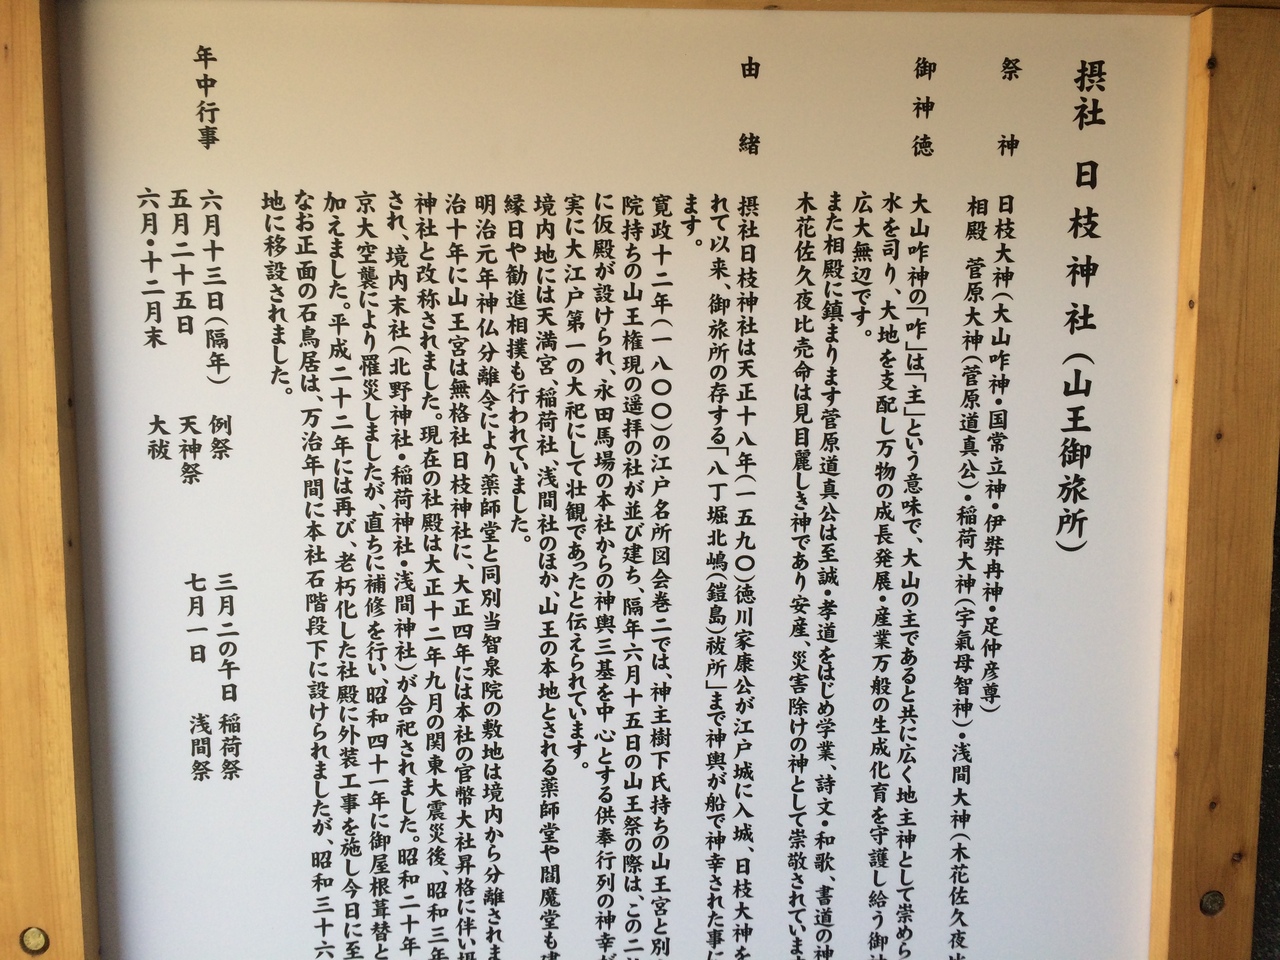 摂社 日枝神社（山王御旅所）
祭神
日枝大神（大山咋神・国常立神・伊弉冉神・足仲彦尊）
相殿 菅原大神（菅原道真公）・稲荷大神（宇氣母智神）・浅間大神（木花佐久夜
御神徳
大山咋神の「咋」は「主」という意味で、大山の主であると共に広く地主神として崇めら
水を司り、大地を支配し万物の成長発展・産業万般の生成化育を守護し給う御
広大無辺です。
また相殿に鎮まります菅原道真公は至誠・孝道をはじめ学業、詩文・和歌、書道の神
木花佐久夜比売命は見目麗しき神であり安産、災害除けの神として崇敬されていま
由緒
摂社日枝神社は天正十八年（一五九〇）徳川家康公が江戸城に入城、日枝大神を
れて以来、御旅所の存する「八丁堀北嶋（鎧島）祓所」まで神輿が船で神幸された事に
ます。
寛政十二年（一八〇〇）の江戸名所図会巻二では、神主樹下氏持ちの山王宮と別
院持ちの山王権現の遥拝の社が並び建ち、隔年六月十五日の山王祭の際は、この二
に仮殿が設けられ、永田馬場の本社からの神輿三基を中心とする供奉行列の神幸が
実に大江戸第一の大祀にして壮観であったと伝えられています。
境内地には天満宮、稲荷社、浅間社のほか、山王の本地とされる薬師堂や閻魔堂も
縁日や勧進相撲も行われていました。
明治元年神仏分離令により薬師堂と同別当智泉院の敷地は境内から分離されま
治十年に山王宮は無格社日枝神社に、大正四年には本社の官幣大社昇格に伴い
神社と改称されました。現在の社殿は大正十二年九月の関東大震災後、昭和三年
され、境内末社（北野神社・稲荷神社・浅間神社）が合祀されました。昭和二十年
京大空襲により罹災しましたが、直ちに補修を行い、昭和四十一年に御屋根葺替と
加えました。平成二十二年には再び、老朽化した社殿に外装工事を施し今日に至
なお正面の石鳥居は、万治年間に本社石階段下に設けられましたが、昭和三十六
地に移設されました。
年中行事
六月十三日（隔年） 例祭 三月二の午日 稲荷祭
五月二十五日 天神祭 七月一日 浅間祭
六月・十二月末 大祓